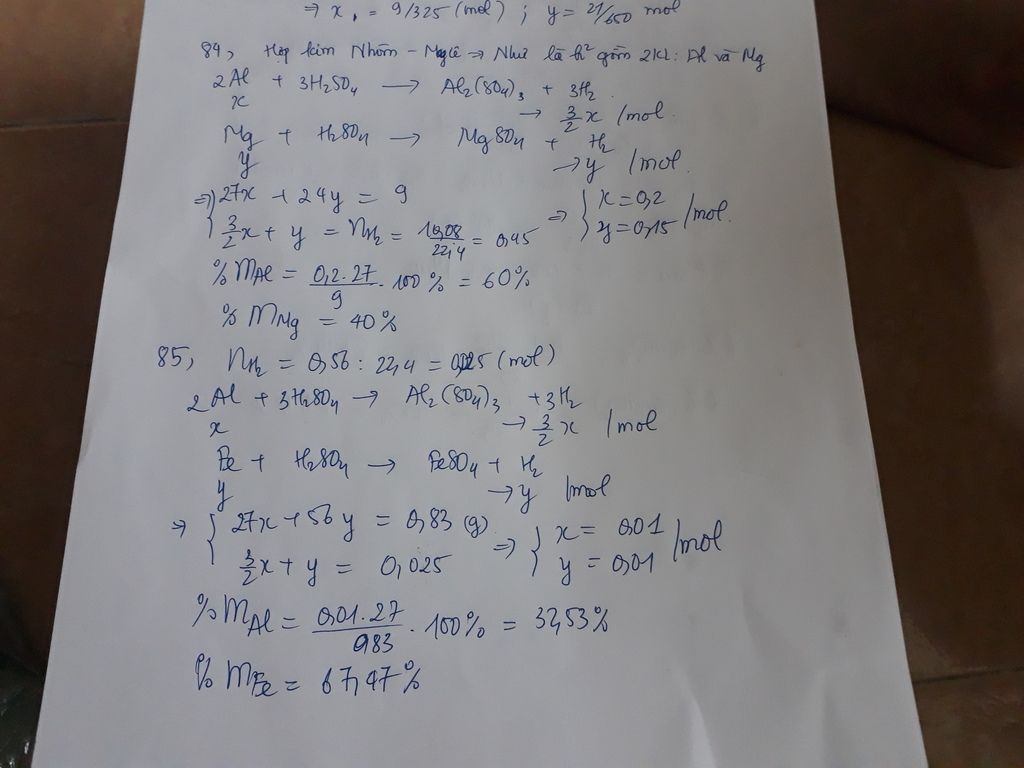 ⇒ x = 9/325 (mol) ; y = 21/650 mol
84, Hợp kim Nhôm - Magiê → Như là h² gồm 2KL: Al và Mg
2Al + 3H₂SO₄ → Al₂(SO₄)₃ + 3H₂
x → 3/2 x /mol.
Mg + H₂SO₄ → MgSO₄ + H₂
y → y /mol.
⇒ { 27x + 24y = 9
3/2 x + y = nH₂ = 10,08/22,4 = 0,45 ⇒ { x = 0,2 y = 0,15 /mol.
% mAl = 0,2.27/9 . 100% = 60%
% mMg = 40%
85, nH₂ = 0,56 : 22,4 = 0,025 (mol)
2Al + 3H₂SO₄ → Al₂(SO₄)₃ + 3H₂
x → 3/2 x /mol
Fe + H₂SO₄ → FeSO₄ + H₂
y → y /mol
⇒ { 27x + 56y = 0,83 (g)
3/2 x + y = 0,025 ⇒ { x = 0,01 y = 0,01 /mol
% mAl = 0,01.27/0,83 . 100% = 32,53%
% mFe = 67,47%